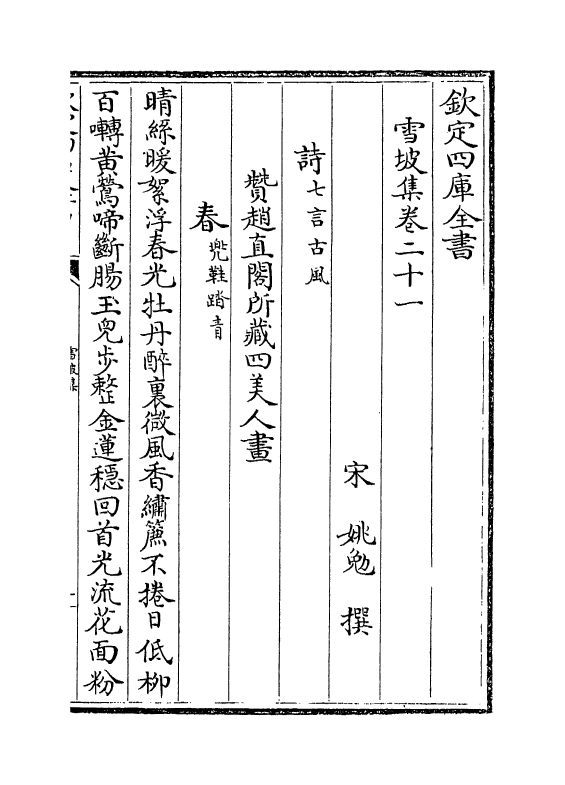 欽定四庫全書
雪坡集卷二十一
宋 姚勉 撰
詩七言古風
贊趙直閣所藏四美人畫
春兜鞋踏青
晴絲暖絮浮春光牡丹醉裏微風香繡簾不捲日低柳
百囀黃鶯啼斷腸玉兒步整金蓮穩回首光流花面粉
雪坡集